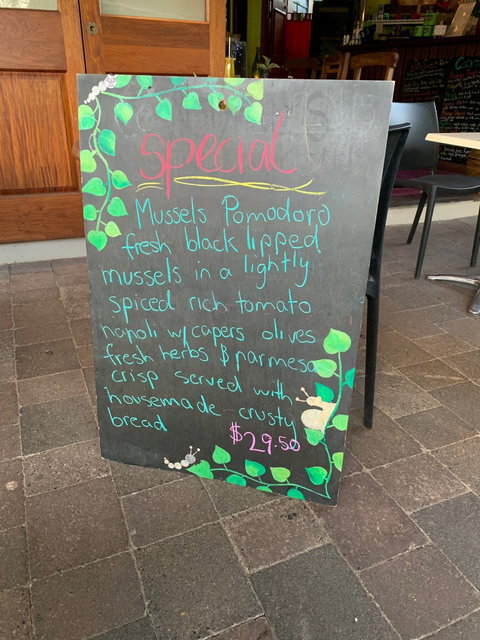 special
Mussels Pomodoro
fresh black lipped
mussels in a lightly
spiced rich tomato
napoli w/ capers olives
fresh herbs & parmesa
crisp served with
housemade crusty
bread
$29.50